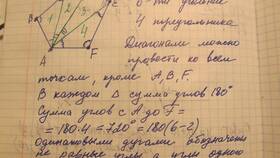 6-ти угольник
1 2 3 4
4 треугольника
A F
Диагонали можно
провести ко всем
точкам, кроме A, B, F.
В каждом Δ сумма углов 180°
Сумма углов с A до F =
= 180·4 = 720° = 180(6-2)
одинаковыми дугами обозначены
не равные углы а углы одного